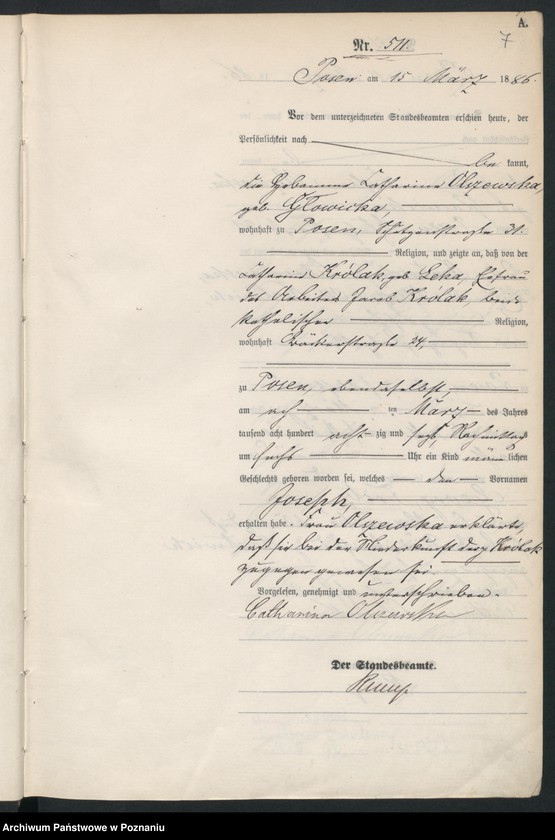 A.
7
Nr. 511.
Posen am 15 März 1886.
Vor dem unterzeichneten Standesbeamten erschien heute, der
Persönlichkeit nach
be kannt,
die Hebamme Catharina Olszewska,
geb. Głowicka,
wohnhaft zu Posen, Schützenstraße 31.
Religion, und zeigte an, daß von der
Catharina Królak, geb. Leka, Ehefrau
des Arbeiters Jacob Królak, beide
katholischer Religion,
wohnhaft Bäckerstraße 24,
zu Posen, ebendaselbst,
am ach ten März des Jahres
tausend acht hundert acht zig und sechs, Nachmittag
um sechs Uhr ein Kind männ lichen
Geschlechts geboren worden sei, welches den Vornamen
Joseph,
erhalten habe. Frau Olszewska erklärte,
daß sie bei der Niederkunft der Królak
zugegen gewesen sei.
Vorgelesen, genehmigt und unterschrieben.
Catharina Olszewska
Der Standesbeamte.
Archiwum Państwowe w Poznaniu